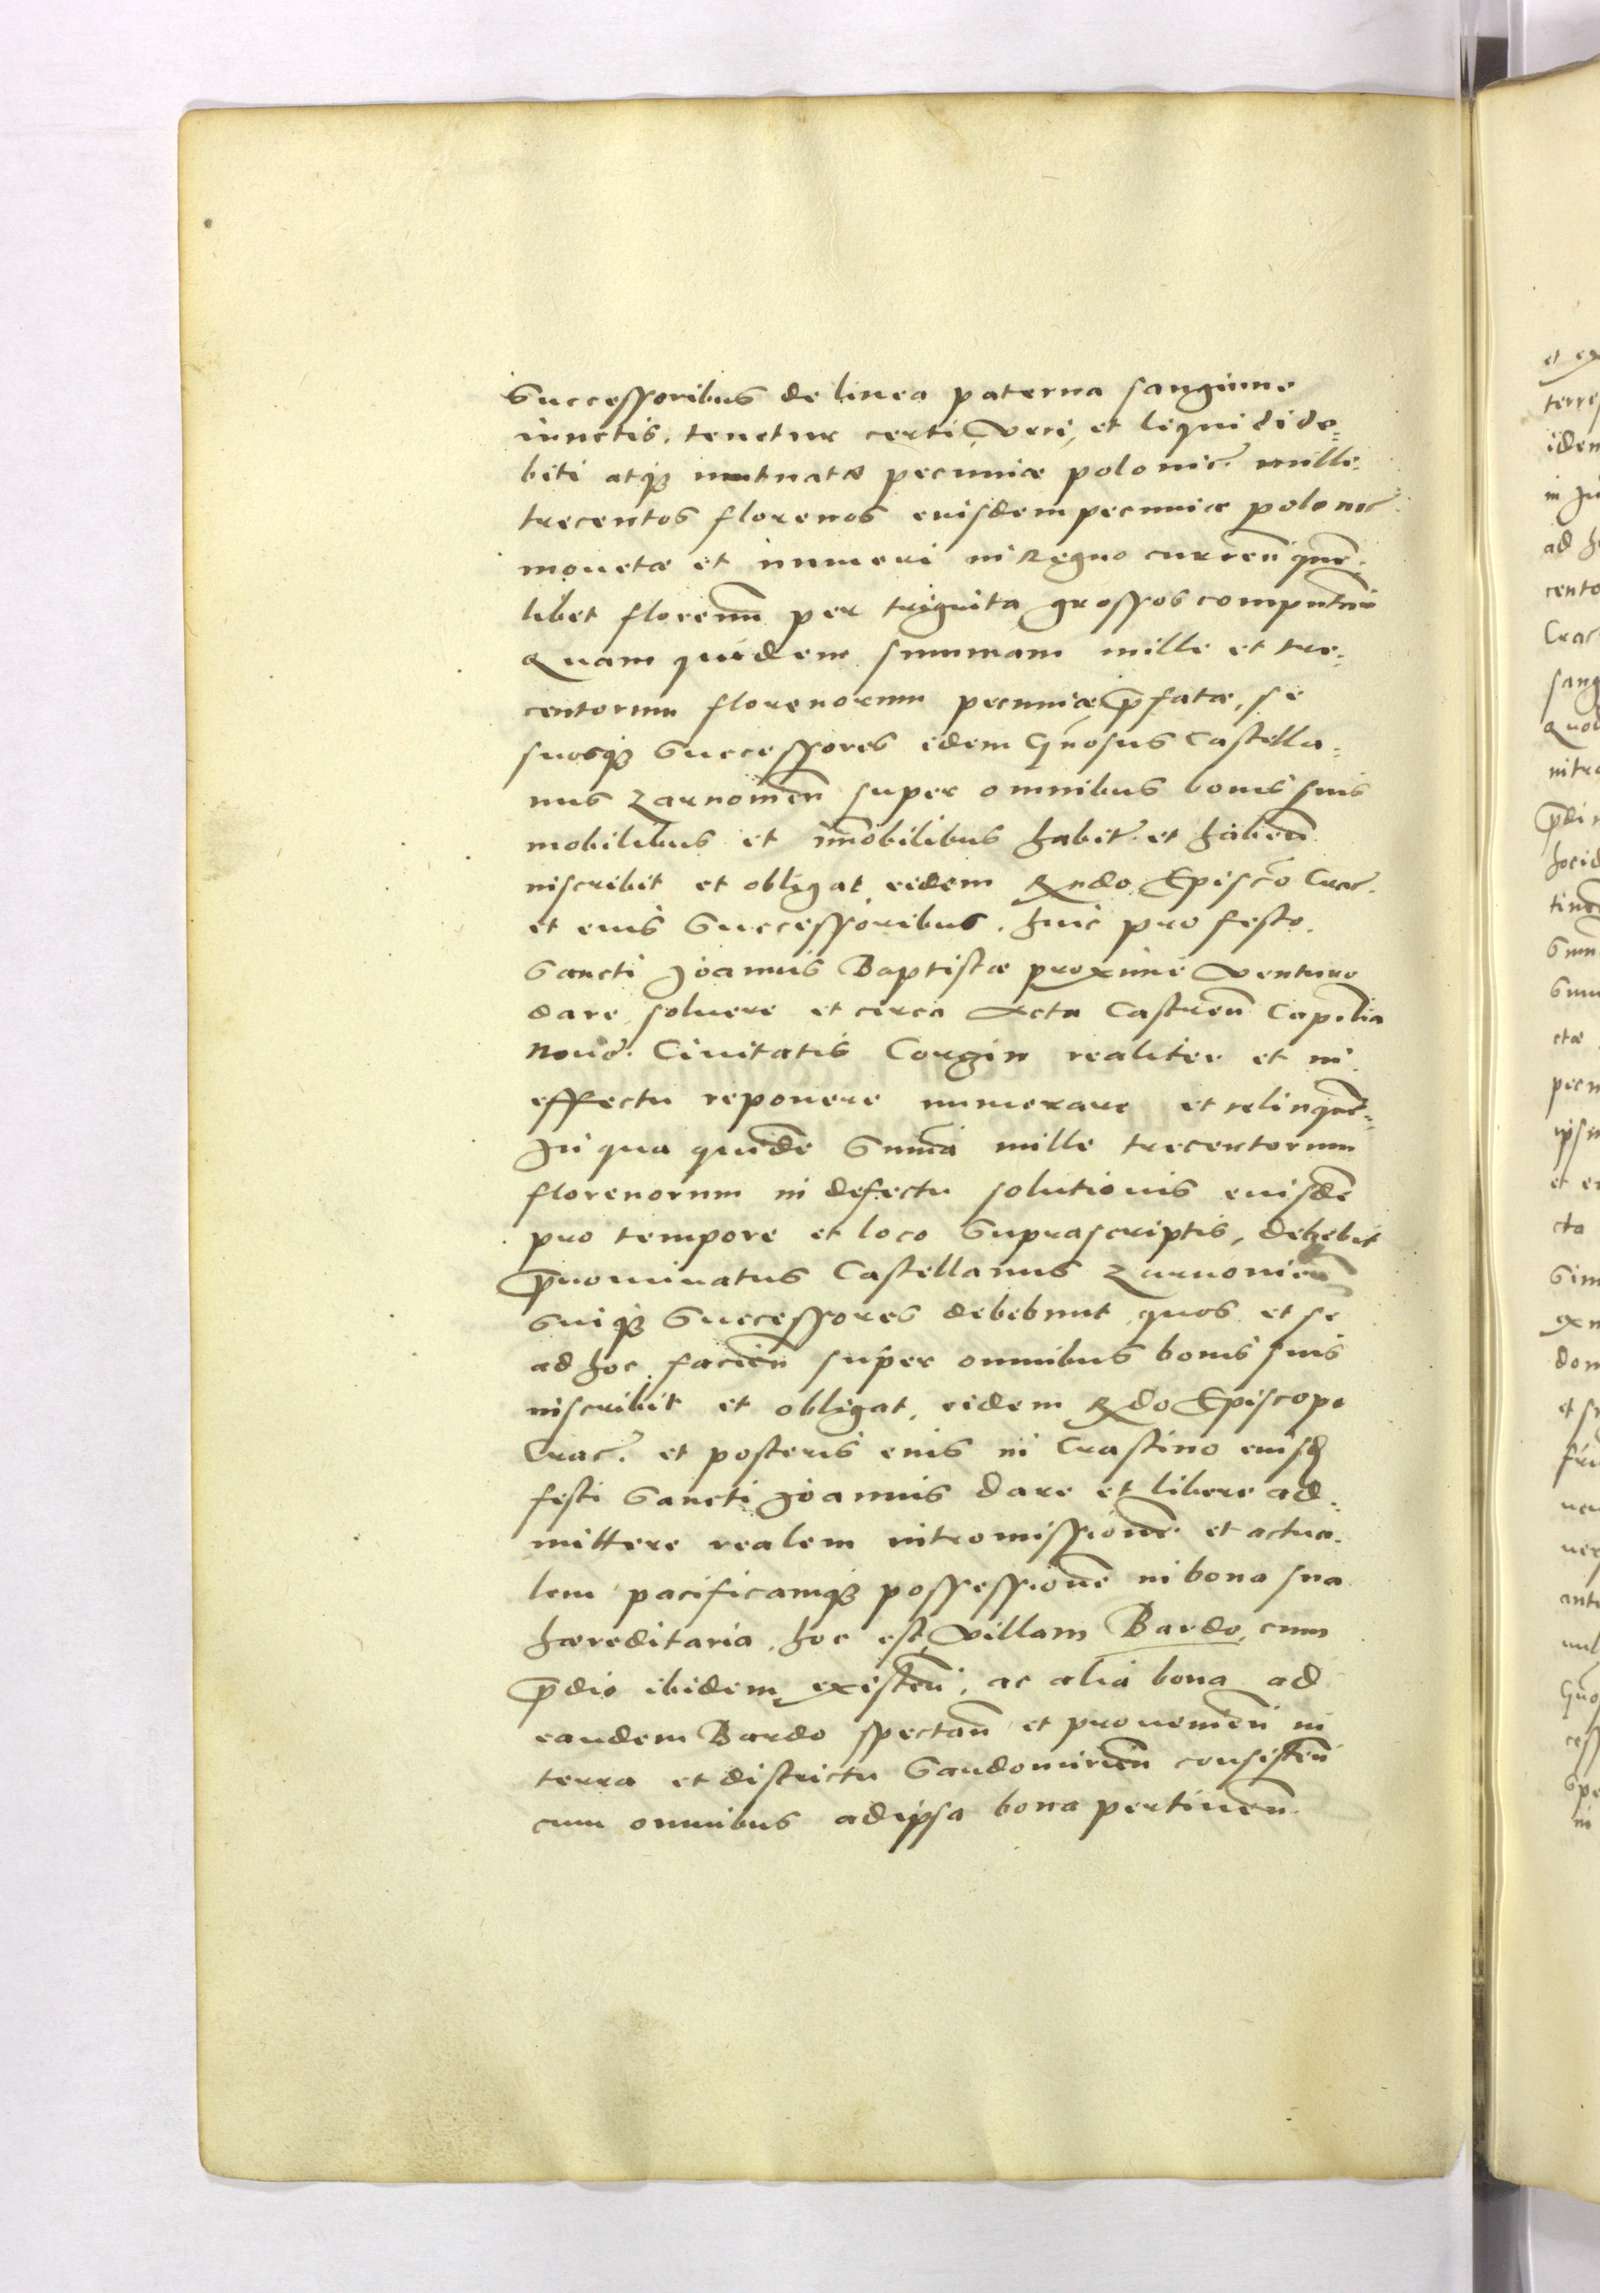 Successoribus de linea paterna sanguine
iunctis. tenetur certi, veri, et liquidi de=
biti atq₃ mutuatæ pecuniæ polonic. mille
trecentos florenos euisdem pecuniæ polonic.
monetæ et numeri in Regno curreñ quem=
libet florenũ per triginta grossos computañ
Quam quidem summam mille et tre=
centorum florenorum pecuniæ p̃fatæ, se
suosq₃ Successores idem Gñosus Castella=
nus Zarnouieñ super omnibus bonis suis
mobilibus et im̃obilibus habit. et habeñ
inscribit et obligat eidem Rndo Episcõ Crac.
et eius Successoribus. huic pro festo
Sancti Joannis Baptistæ proxime venturo
dare, soluere et circa Acta Castreñ Capitlia
Noue. Ciuitatis Corzin realiter et in
effectu reponere numerare et relinquẽ=
In qua quidẽ Sum̃a mille trecentorum
florenorum in defectu solutionis euisdẽ
pro tempore et loco Suprascriptis, debebit
p̃nominatus Castellanus Zarnouieñ
Suiq₃ Successores debebunt quos et se
ad hoc facieñ super omnibus bonis suis
inscribit et obligat, eidem Rdo Episcopo
Crac. et posteris eius in Crastino euisd
festi Sancti Joannis dare et libere ad=
mittere realem intromissionẽ et actua=
lem pacificamq₃ possessionẽ in bona sua
hæreditaria, hoc est villam Bardo, cum
p̃dio ibidem existeñ. ac alia bona ad
eandem Bardo spectañ et prouenieñ in
terra et districtu Sandomirieñ consisteñ
cum omnibus ad ipsa bona pertineñ.